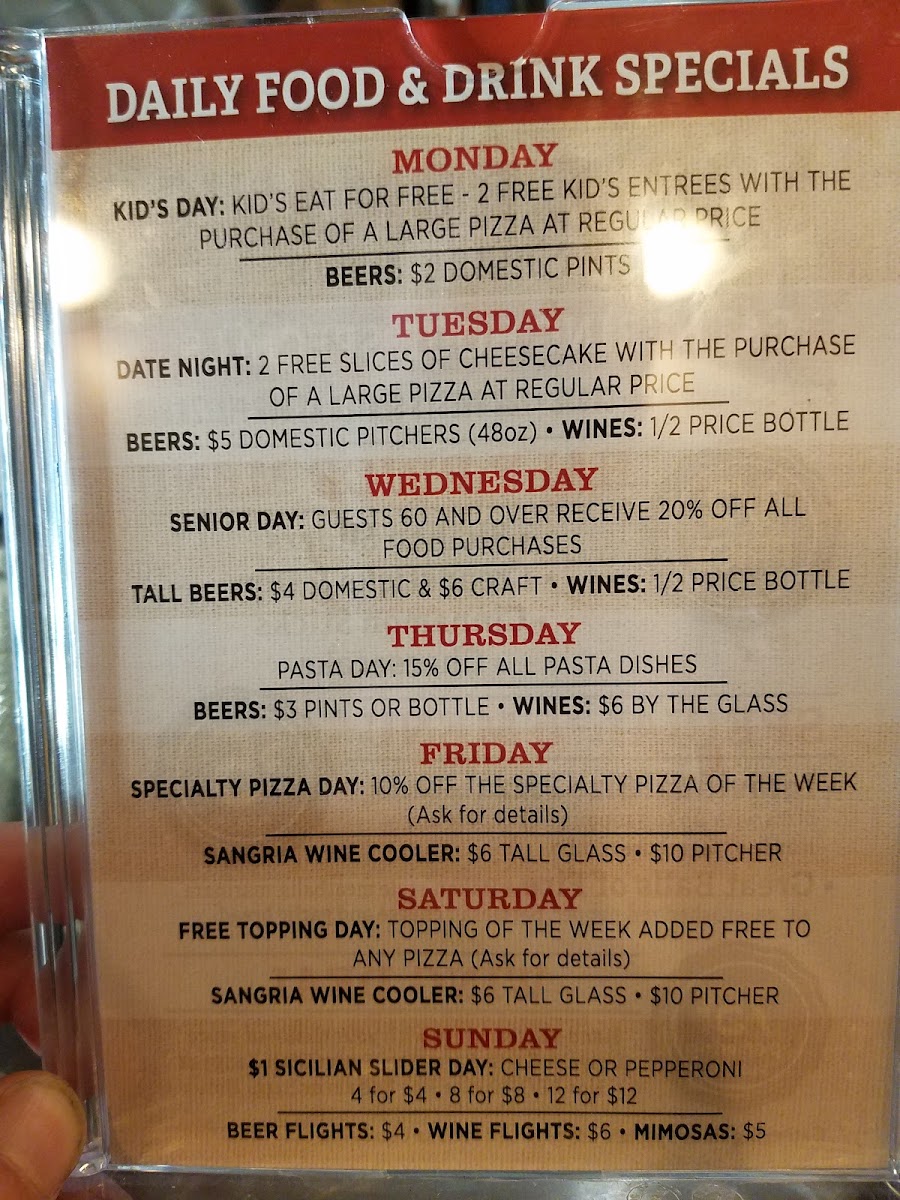 DAILY FOOD & DRINK SPECIALS
MONDAY
KID'S DAY: KID'S EAT FOR FREE - 2 FREE KID'S ENTREES WITH THE
PURCHASE OF A LARGE PIZZA AT REGULAR PRICE
BEERS: $2 DOMESTIC PINTS
TUESDAY
DATE NIGHT: 2 FREE SLICES OF CHEESECAKE WITH THE PURCHASE
OF A LARGE PIZZA AT REGULAR PRICE
BEERS: $5 DOMESTIC PITCHERS (48oz) • WINES: 1/2 PRICE BOTTLE
WEDNESDAY
SENIOR DAY: GUESTS 60 AND OVER RECEIVE 20% OFF ALL
FOOD PURCHASES
TALL BEERS: $4 DOMESTIC & $6 CRAFT • WINES: 1/2 PRICE BOTTLE
THURSDAY
PASTA DAY: 15% OFF ALL PASTA DISHES
BEERS: $3 PINTS OR BOTTLE • WINES: $6 BY THE GLASS
FRIDAY
SPECIALTY PIZZA DAY: 10% OFF THE SPECIALTY PIZZA OF THE WEEK
(Ask for details)
SANGRIA WINE COOLER: $6 TALL GLASS • $10 PITCHER
SATURDAY
FREE TOPPING DAY: TOPPING OF THE WEEK ADDED FREE TO
ANY PIZZA (Ask for details)
SANGRIA WINE COOLER: $6 TALL GLASS • $10 PITCHER
SUNDAY
$1 SICILIAN SLIDER DAY: CHEESE OR PEPPERONI
4 for $4 • 8 for $8 • 12 for $12
BEER FLIGHTS: $4 • WINE FLIGHTS: $6 • MIMOSAS: $5